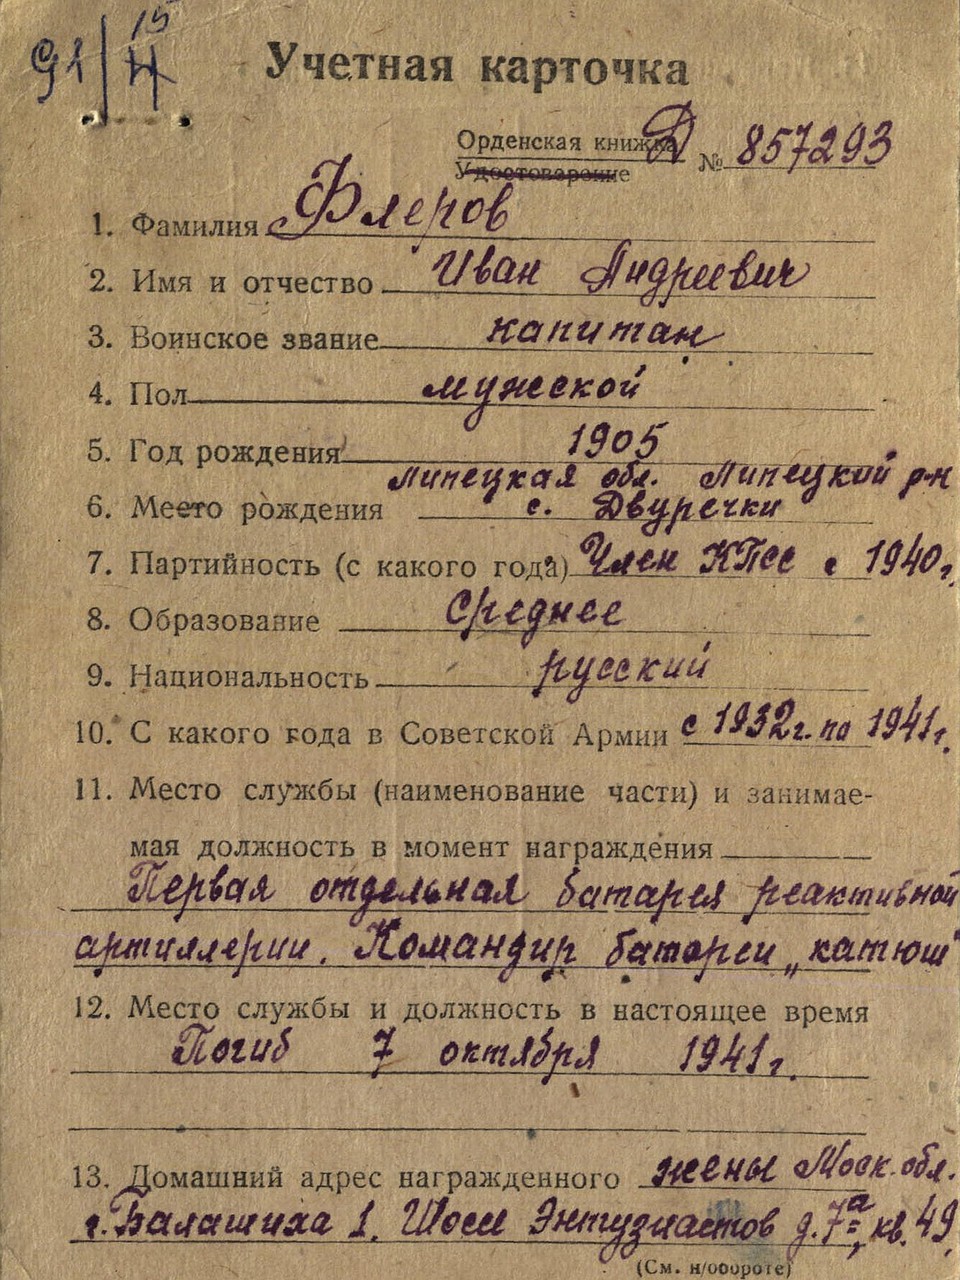 15
91/Н
Учетная карточка
Орденская книжка Д № 857293
Удостоверение
1. Фамилия Флеров
2. Имя и отчество Иван Андреевич
3. Воинское звание капитан
4. Пол мужской
5. Год рождения 1905
Липецкая обл. Липецкий р-н
6. Место рождения с. Двуречки
7. Партийность (с какого года) Член КПСС с 1940г.
8. Образование Среднее
9. Национальность русский
10. С какого года в Советской Армии с 1932г. по 1941г.
11. Место службы (наименование части) и занимае-
мая должность в момент награждения
Первая отдельная батарея реактивной
артиллерии. Командир батареи „катюш"
12. Место службы и должность в настоящее время
Погиб 7 октября 1941г.
13. Домашний адрес награжденного жены Моск. обл.
г. Балашиха 1, Шоссе Энтузиастов д. 7а, кв. 49
(См. н/обороте)